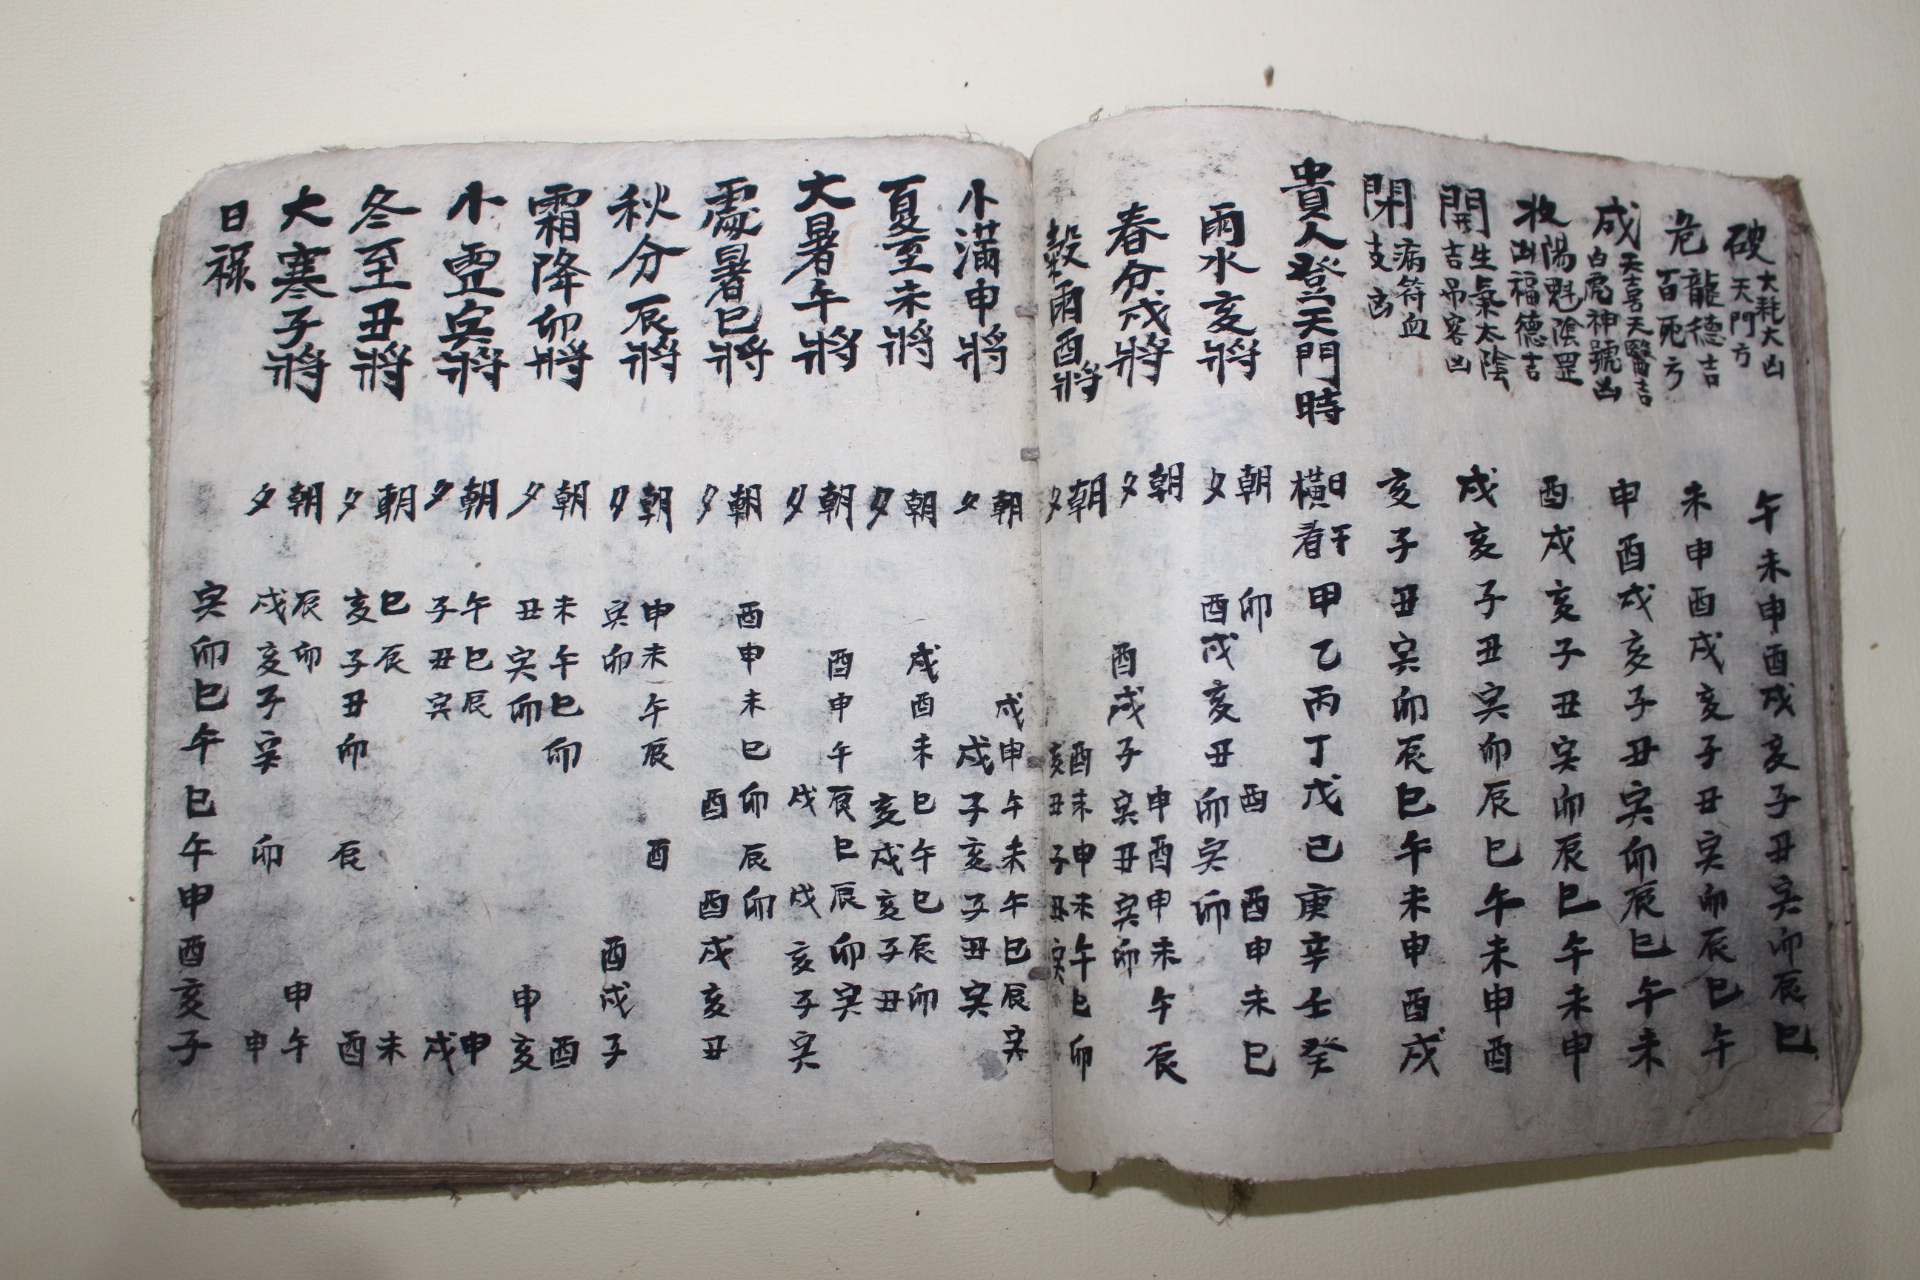 破 大耗大凶
天門方
午未申酉戌亥子丑寅卯辰巳
危 龍德吉
百死方
未申酉戌亥子丑寅卯辰巳午
成 天喜天醫吉
白虎神號凶
申酉戌亥子丑寅卯辰巳午未
收 陽魁陰罡
凶福德吉
酉戌亥子丑寅卯辰巳午未申
開 生氣太陰
吉吊客凶
戌亥子丑寅卯辰巳午未申酉
閉 病符血
支凶
亥子丑寅卯辰巳午未申酉戌
貴人登天門時
日干
橫看
甲乙丙丁戊己庚辛壬癸
雨水亥將
朝 卯 酉 酉申未巳
夕 酉戌亥丑卯寅卯
春分戌將
朝 申酉申未午辰
夕 酉戌子寅丑寅卯
穀雨酉將
朝 酉未申未午巳卯
夕 亥丑子丑寅
小滿申將
朝 戌申午未午巳辰寅
夕 戌子亥子丑寅
夏至未將
朝 戌酉未巳午巳辰卯
夕 亥戌亥子丑
大暑午將
朝 酉申午辰巳辰卯寅
夕 戌 戌亥子寅
處暑巳將
朝 酉申未巳卯辰卯
夕 酉 酉戌亥丑
秋分辰將
朝 申未午辰 酉
夕 寅卯 酉戌子
霜降卯將
朝 未午巳卯 酉
夕 丑寅卯 申亥
小雪寅將
朝 午巳辰 申
夕 子丑寅 戌
冬至丑將
朝 巳辰 未
夕 亥子丑卯 辰 酉
大寒子將
朝 辰卯 申午
夕 戌亥子寅 卯 申
日祿
寅卯巳午巳午申酉亥子